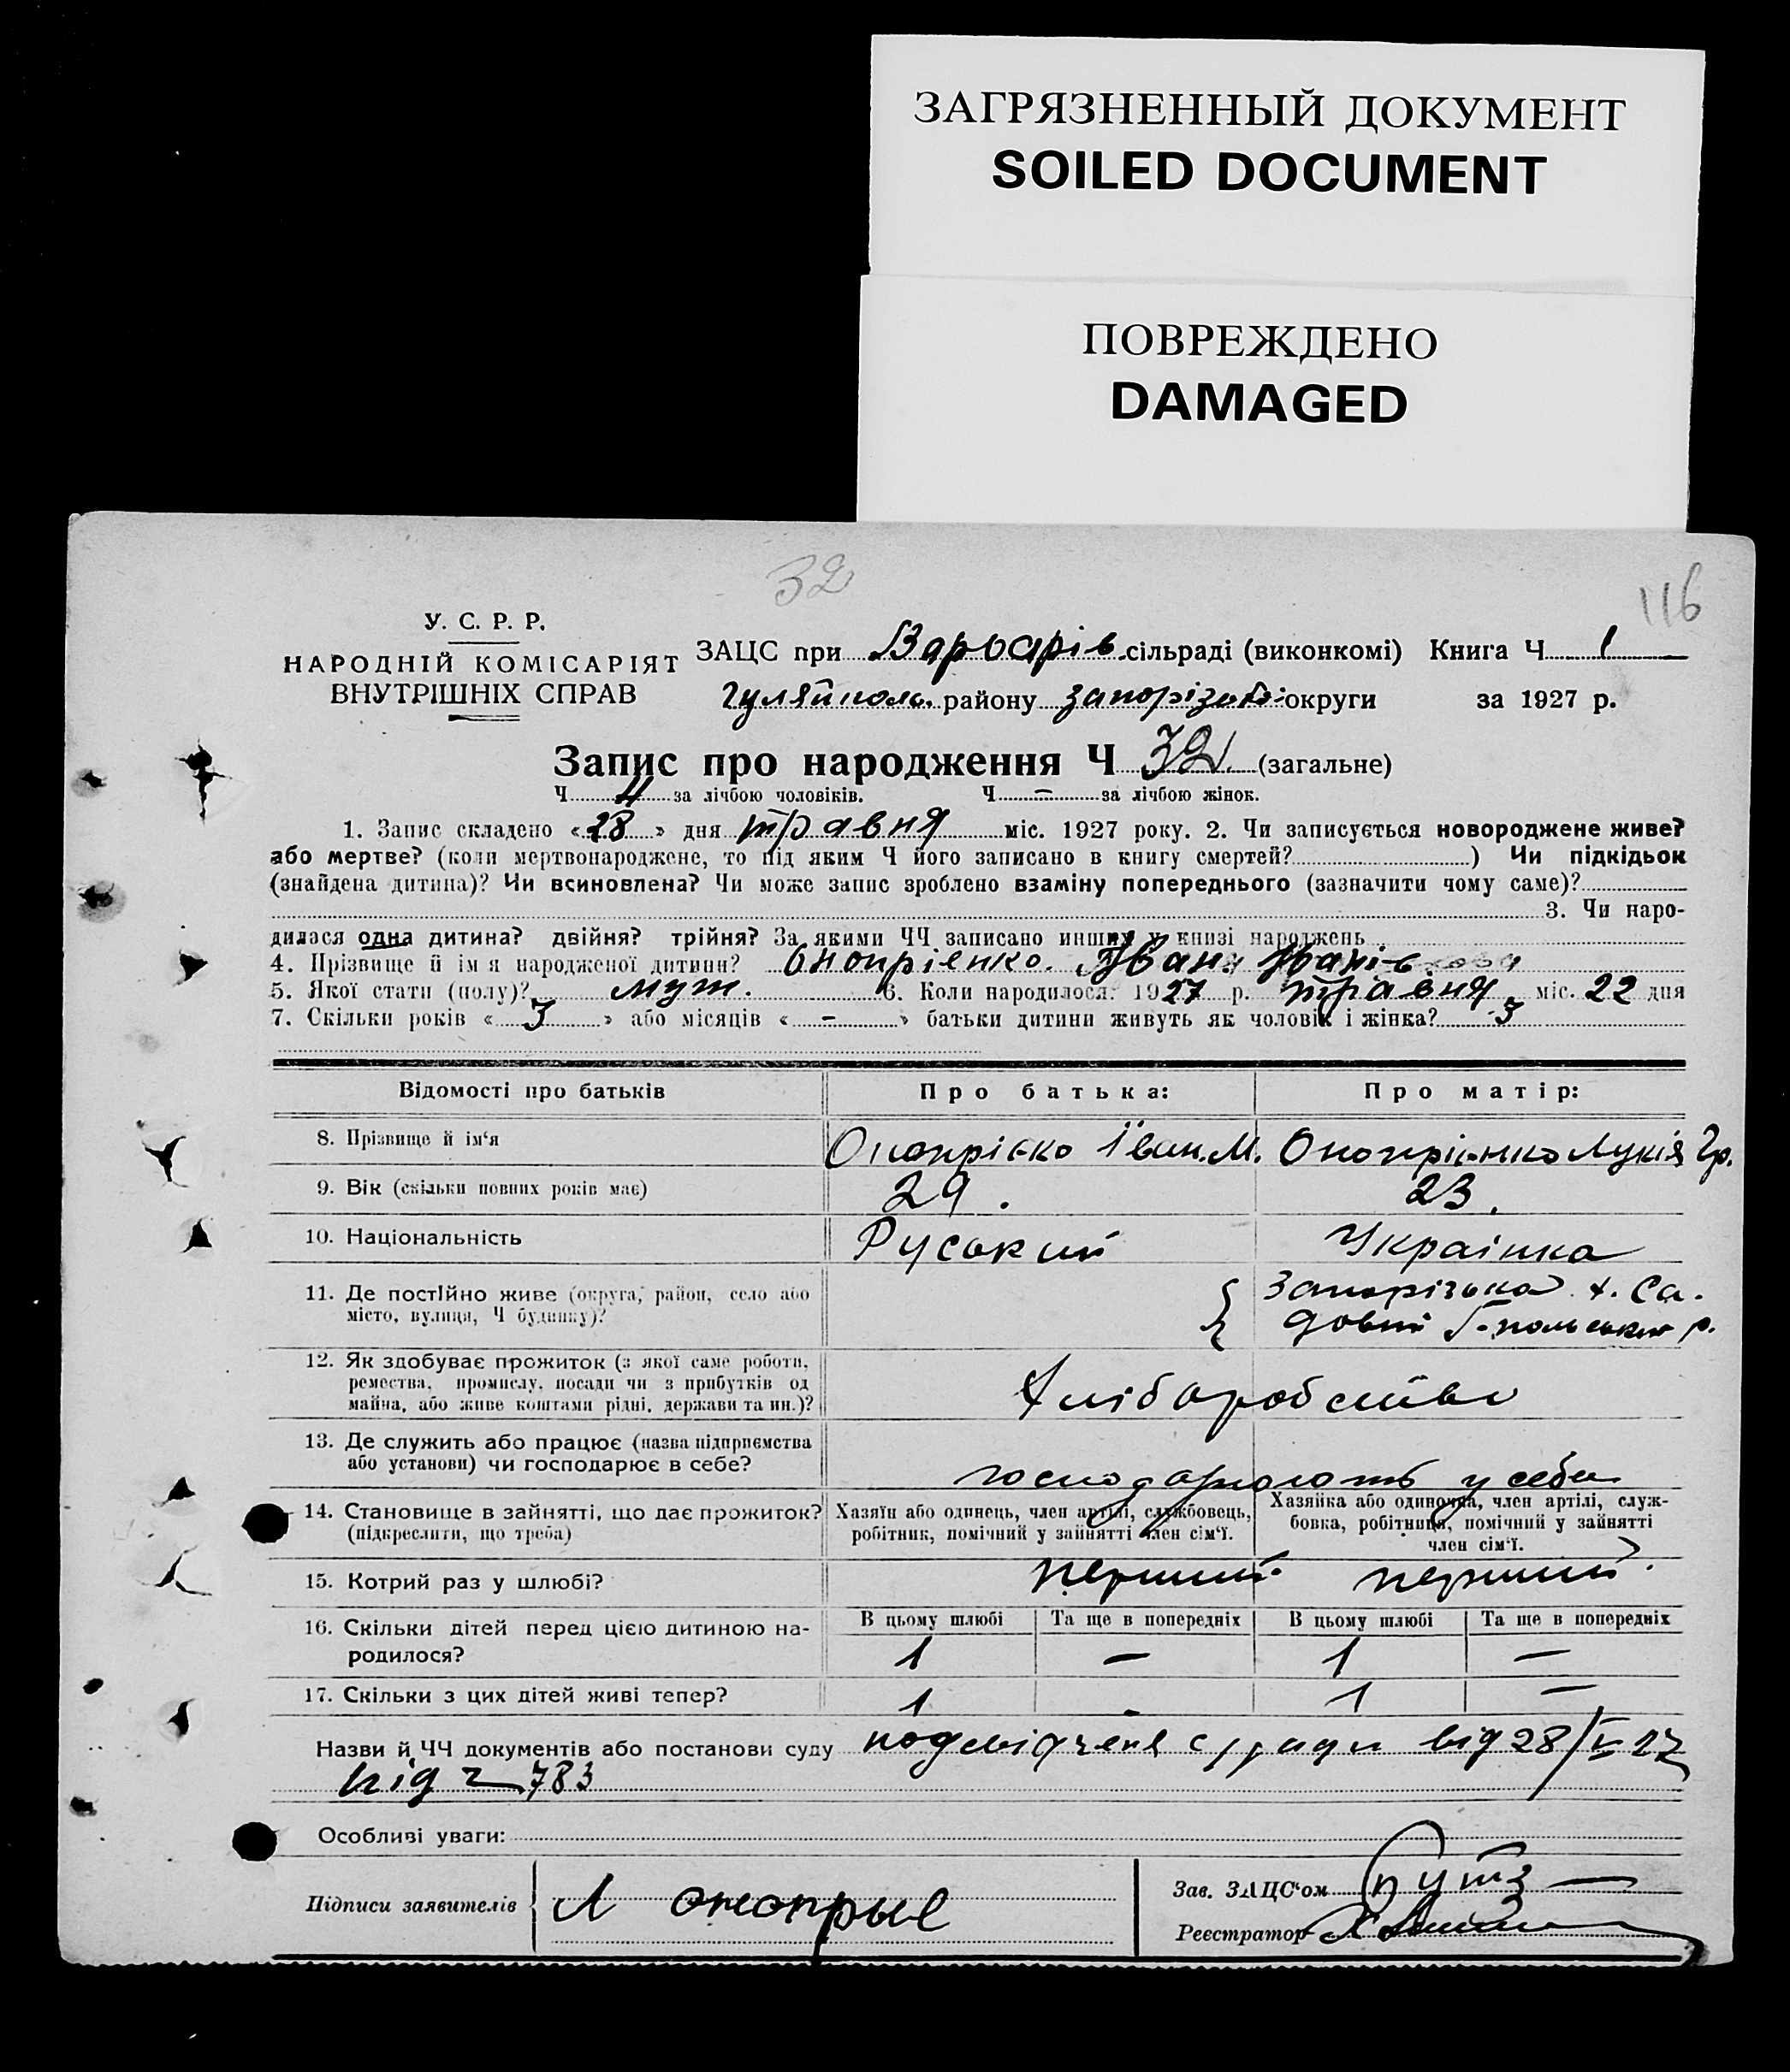 ЗАГРЯЗНЕННЫЙ ДОКУМЕНТ
SOILED DOCUMENT
ПОВРЕЖДЕНО
DAMAGED
32
116
У. С. Р. Р.
НАРОДНІЙ КОМІСАРІЯТ
ВНУТРІШНІХ СПРАВ
ЗАЦС при Варварів. сільраді (виконкомі) Книга Ч 1
Гуляйполь. району Запорізької округи за 1927 р.
Запис про народження Ч 32 (загальне)
Ч за лічбою чоловіків. Ч — за лічбою жінок.
1. Запис складено «28» дня травня міс. 1927 року. 2. Чи записується новороджене живе?
або мертве? (коли мертвонароджене, то під яким Ч його записано в книгу смертей? ) Чи підкідьок
(знайдена дитина)? Чи всиновлена? Чи може запис зроблено взаміну попереднього (зазначити чому саме)?
3. Чи наро-
дилася одна дитина? двійня? трійня? За якими ЧЧ записано инших у книзі народжень
4. Прізвище й ім'я народженої дитини? Онопрієнко. Іван Іванів.
5. Якої стати (полу)? муж. 6. Коли народилося: 1927 р. травня міс. 22 дня
7. Скільки років «3» або місяців «-» батьки дитини живуть як чоловік і жінка? 3
Відомості про батьків Про батька: Про матір:
8. Прізвище й ім'я Онопрієко Іван. М. Онопрієнко Лукія Гр.
9. Вік (скільки повних років має) 29. 23.
10. Національність Руський Українка
11. Де постійно живе (округа, район, село або
місто, вулиця, Ч будинку)?
Запорізька х. Са-
довий Г-польськ р.
12. Як здобуває прожиток (з якої саме роботи,
ремества, промислу, посади чи з прибутків од
майна, або живе коштами рідні, держави та ин.)?
Хліборобство
13. Де служить або працює (назва підприємства
або установи) чи господарює в себе?
господарюють у себе
14. Становище в зайнятті, що дає прожиток?
(підкреслити, що треба)
Хазяїн або одинець, член артілі, службовець,
робітник, помічний у зайнятті член сім'ї.
Хазяйка або одиночка, член артілі, служ-
бовка, робітниця, помічний у зайнятті
член сім'ї.
15. Котрий раз у шлюбі? перший. перший.
16. Скільки дітей перед цією дитиною на-
родилося?
В цьому шлюбі Та ще в попередніх В цьому шлюбі Та ще в попередніх
1 — 1 —
17. Скільки з цих дітей живі тепер? 1 - 1 —
Назви й ЧЧ документів або постанови суду від 28/V 27
під ч 783
Особливі уваги:
Підписи заявителів Л
Зав. ЗАЦС'ом
Реєстратор